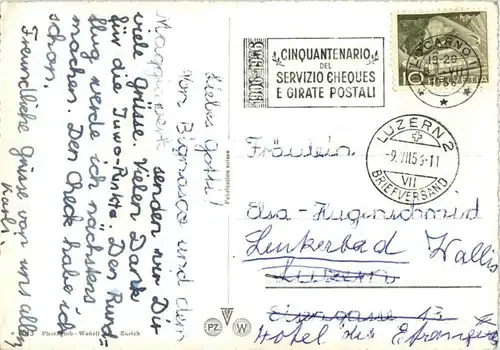 Liebes Gotti!
Von Bignasco und dem
Maggia senden wir Dir
viele Grüsse. Vielen Dank
für die Juwo-Punkte. Den Rund-
flug werde ich nächstens
machen. Den Check habe ich
schon.
Freundliche Grüsse von uns allen
Fabrication suisse
Wehrli Zürich
PZ W
1906-1956
CINQUANTENARIO
DEL
SERVIZIO CHEQUES
E GIRATE POSTALI
10
HELVETIA
LOCARNO 1
19-20
LUZERN 2
-9.VII.56-11
VII
BRIEFVERSAND
Fräulein
Elsa Hugenschmid
Leukerbad Wallis
Luzern
Hotel des Etrangers